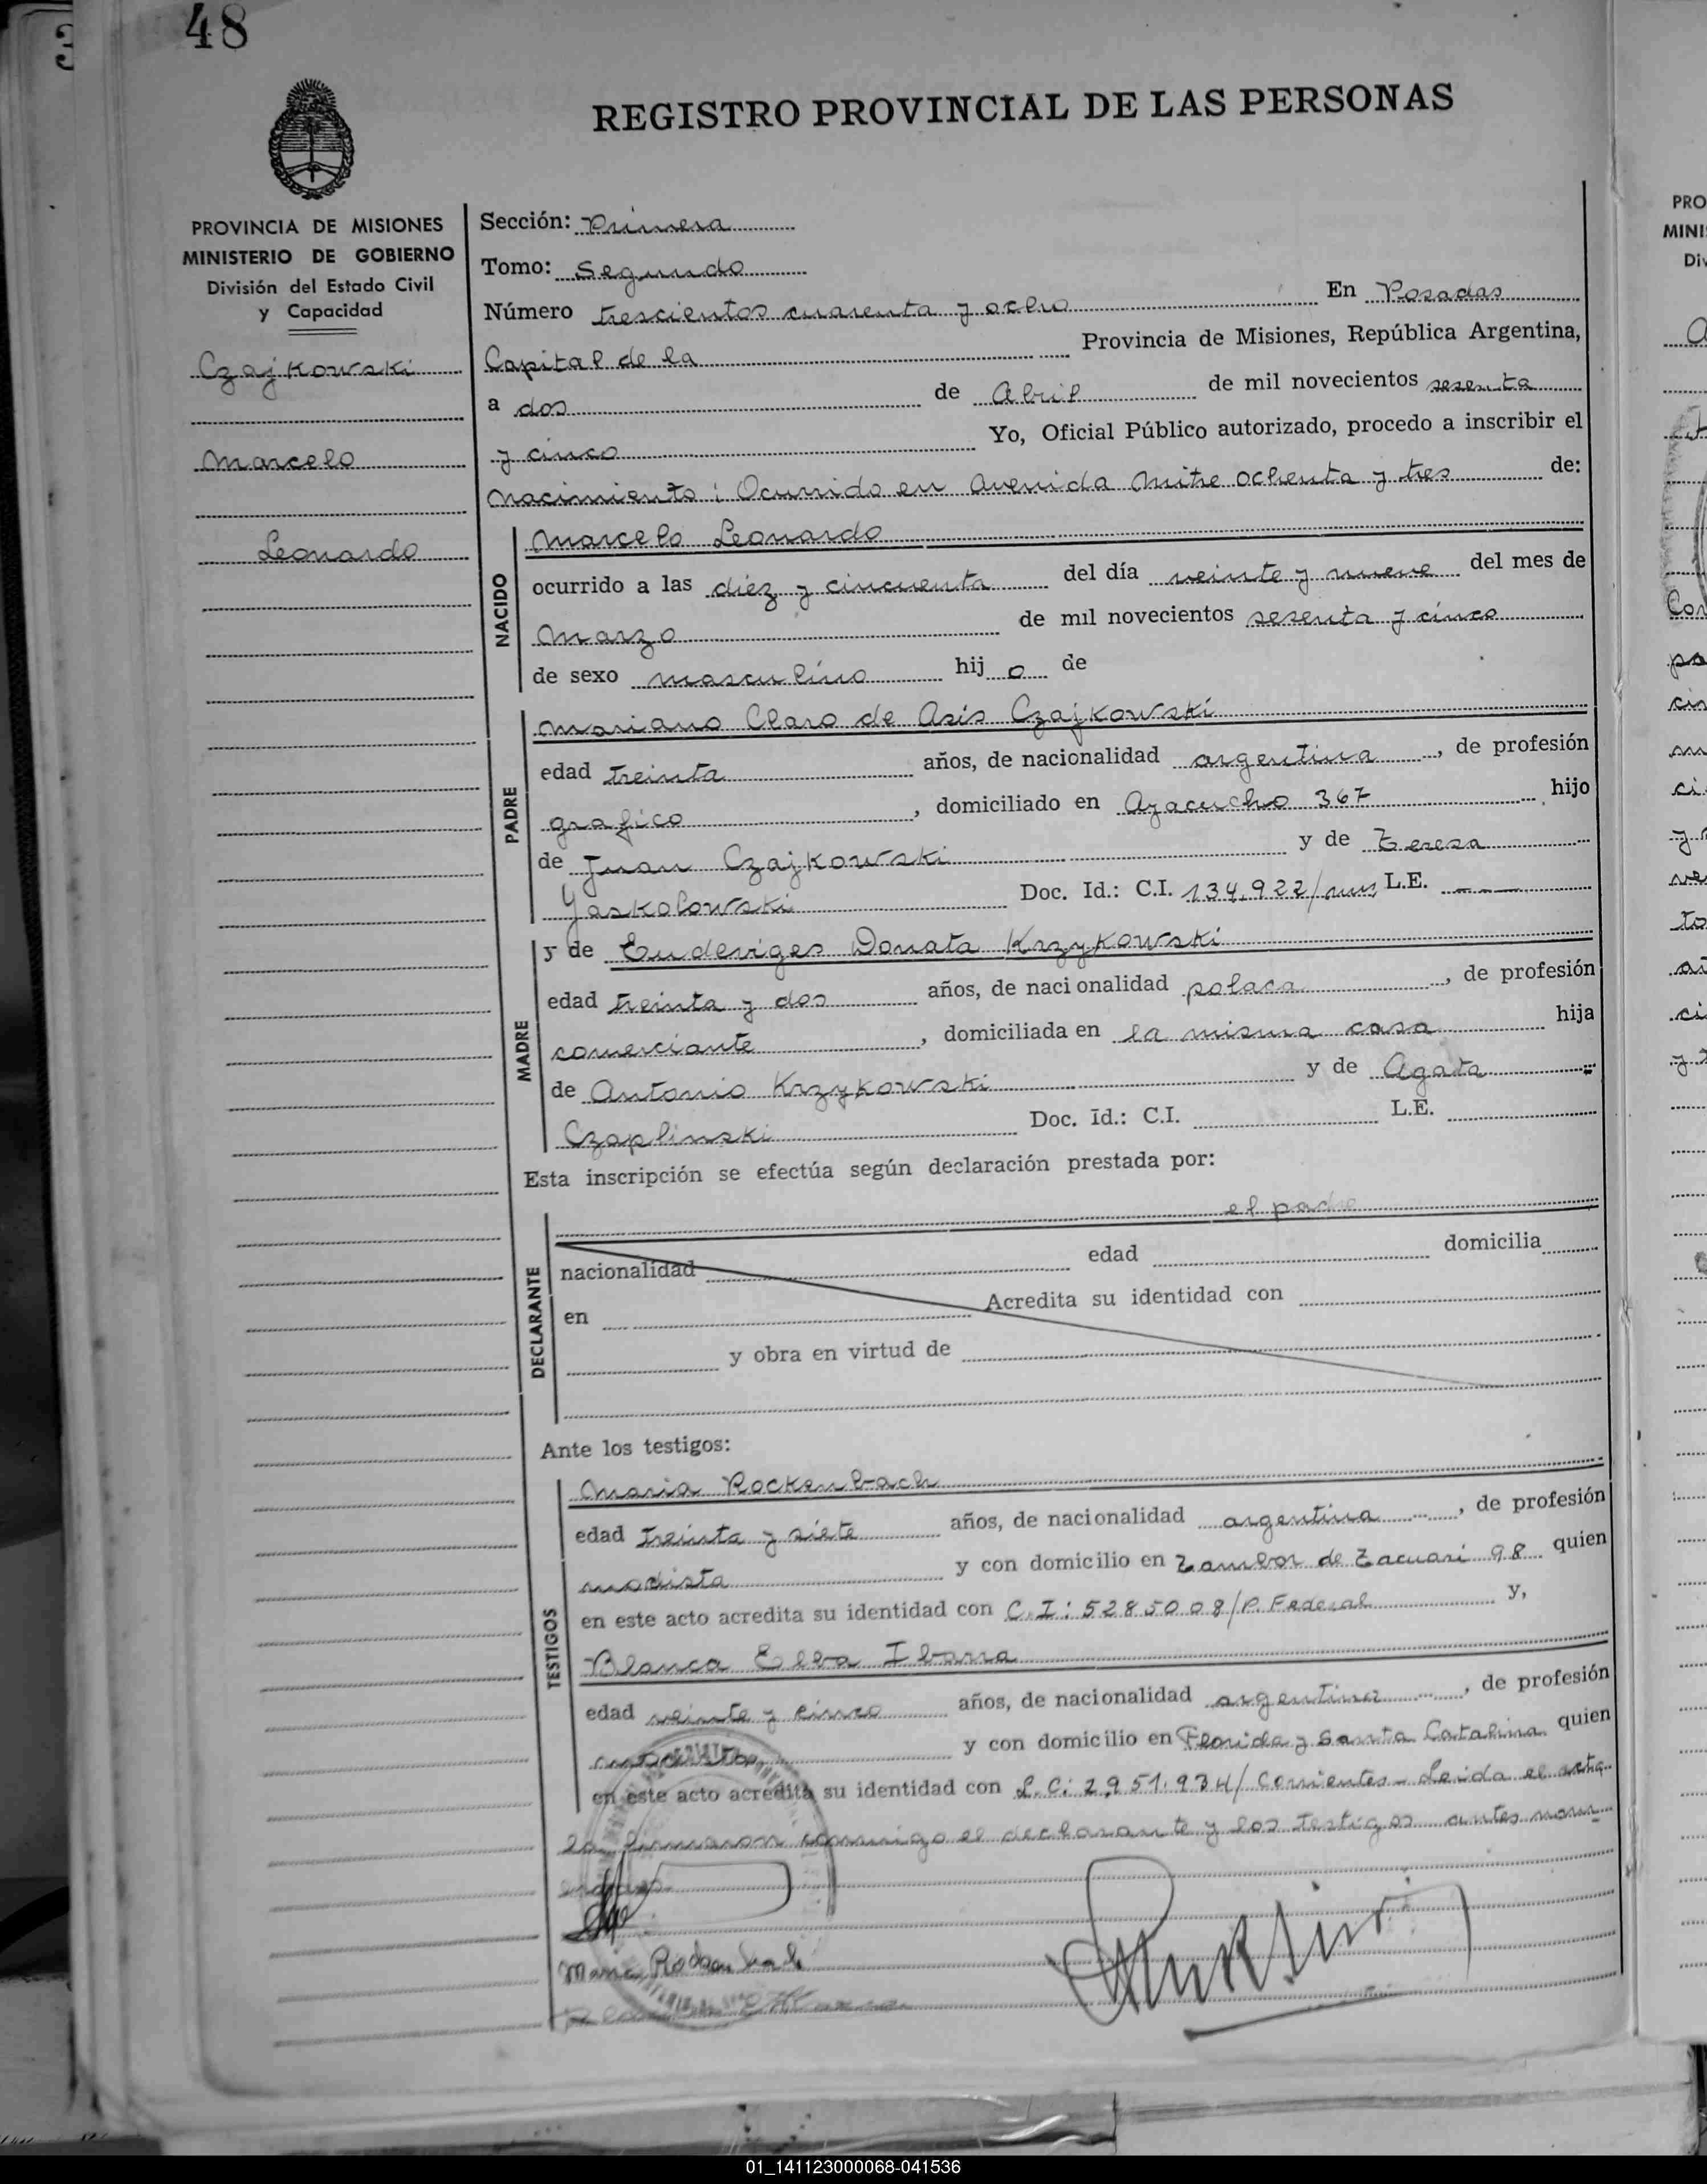 48
REGISTRO PROVINCIAL DE LAS PERSONAS
PROVINCIA DE MISIONES
MINISTERIO DE GOBIERNO
División del Estado Civil
y Capacidad
Czajkowski
Marcelo
Leonardo
Sección: Primera
Tomo: Segundo
Número trescientos cuarenta y ocho En Posadas
Capital de la Provincia de Misiones, República Argentina,
a dos de Abril de mil novecientos sesenta
y cinco Yo, Oficial Público autorizado, procedo a inscribir el
nacimiento: Ocurrido en Avenida Mitre ochenta y tres de:
NACIDO
Marcelo Leonardo
ocurrido a las diez y cincuenta del día veinte y nueve del mes de
Marzo de mil novecientos sesenta y cinco
de sexo masculino hij o de
PADRE
Mariano Claro de Asis Czajkowski
edad treinta años, de nacionalidad argentina, de profesión
grafico, domiciliado en Ayacucho 367 hijo
de Juan Czajkowski y de Teresa
Yaskolowski Doc. Id.: C.I. 134.922/mns L.E. ---
MADRE
y de Eudeviges Donata Krzykowski
edad treinta y dos años, de nacionalidad polaca, de profesión
comerciante, domiciliada en la misma casa hija
de Antonio Krzykowski y de Agata
Czaplinski Doc. Id.: C.I. L.E.
Esta inscripción se efectúa según declaración prestada por:
DECLARANTE
el padre
nacionalidad edad domicilia
en Acredita su identidad con
y obra en virtud de
Ante los testigos:
TESTIGOS
Maria Rockenbach
edad treinta y siete años, de nacionalidad argentina, de profesión
modista y con domicilio en Tambor de Tacuari 98 quien
en este acto acredita su identidad con C.I: 5285008/P. Federal y,
Blanca Elba Ibarra
edad veinte y cinco años, de nacionalidad argentina, de profesión
y con domicilio en Florida y Santa Catalina quien
en este acto acredita su identidad con L.C: 2.951.934/Corrientes - Leida el acta
la firmaron conmigo el declarante y los testigos antes nom-
Maria Rockenbach
01_141123000068-041536